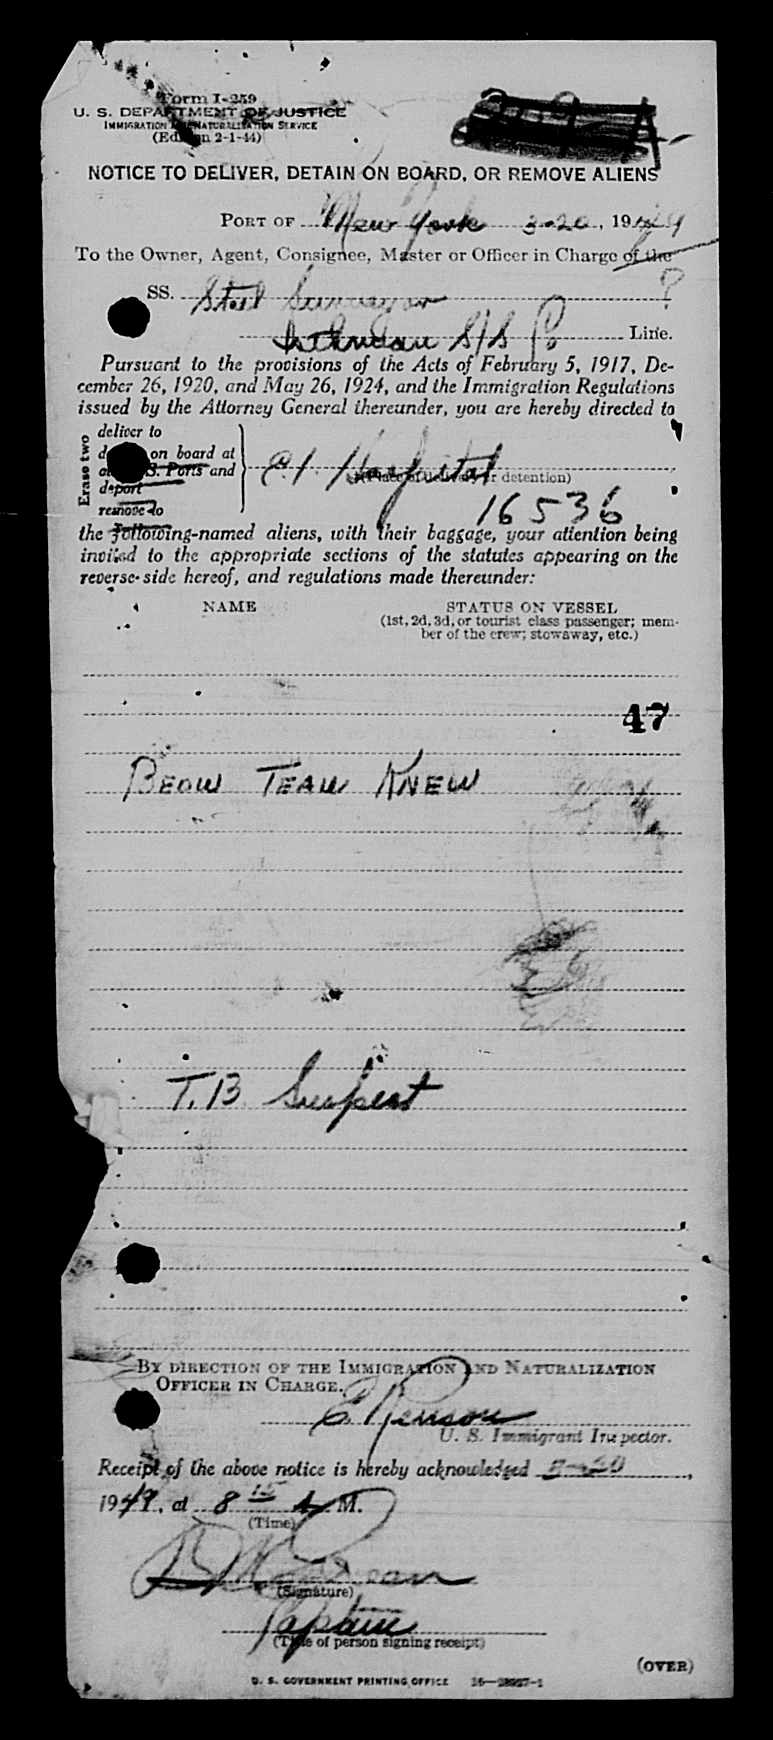 Form I-259
U. S. DEPARTMENT OF JUSTICE
IMMIGRATION AND NATURALIZATION SERVICE
(Edition 2-1-44)
NOTICE TO DELIVER, DETAIN ON BOARD, OR REMOVE ALIENS
PORT OF New York 3-20, 1949
To the Owner, Agent, Consignee, Master or Officer in Charge of the
SS. Steel Surveyor
Isthmian S/S Co Line.
Pursuant to the provisions of the Acts of February 5, 1917, De-
cember 26, 1920, and May 26, 1924, and the Immigration Regulations
issued by the Attorney General thereunder, you are hereby directed to
Erase two
deliver to
on board at
S. Ports and
deport
remove to
E.I. Hospital
(Place of delivery or detention)
16536
the following-named aliens, with their baggage, your attention being
invited to the appropriate sections of the statutes appearing on the
reverse side hereof, and regulations made thereunder:
NAME STATUS ON VESSEL
(1st, 2d, 3d, or tourist class passenger; mem-
ber of the crew; stowaway, etc.)
47
BEOW TEAW KNEW
T.B. Suspect
BY DIRECTION OF THE IMMIGRATION AND NATURALIZATION
OFFICER IN CHARGE.
U. S. Immigrant Inspector.
Receipt of the above notice is hereby acknowledged 3-20,
1949, at 8 15 A. M.
(Time)
(Signature)
Captain
(Title of person signing receipt)
(OVER)
U. S. GOVERNMENT PRINTING OFFICE